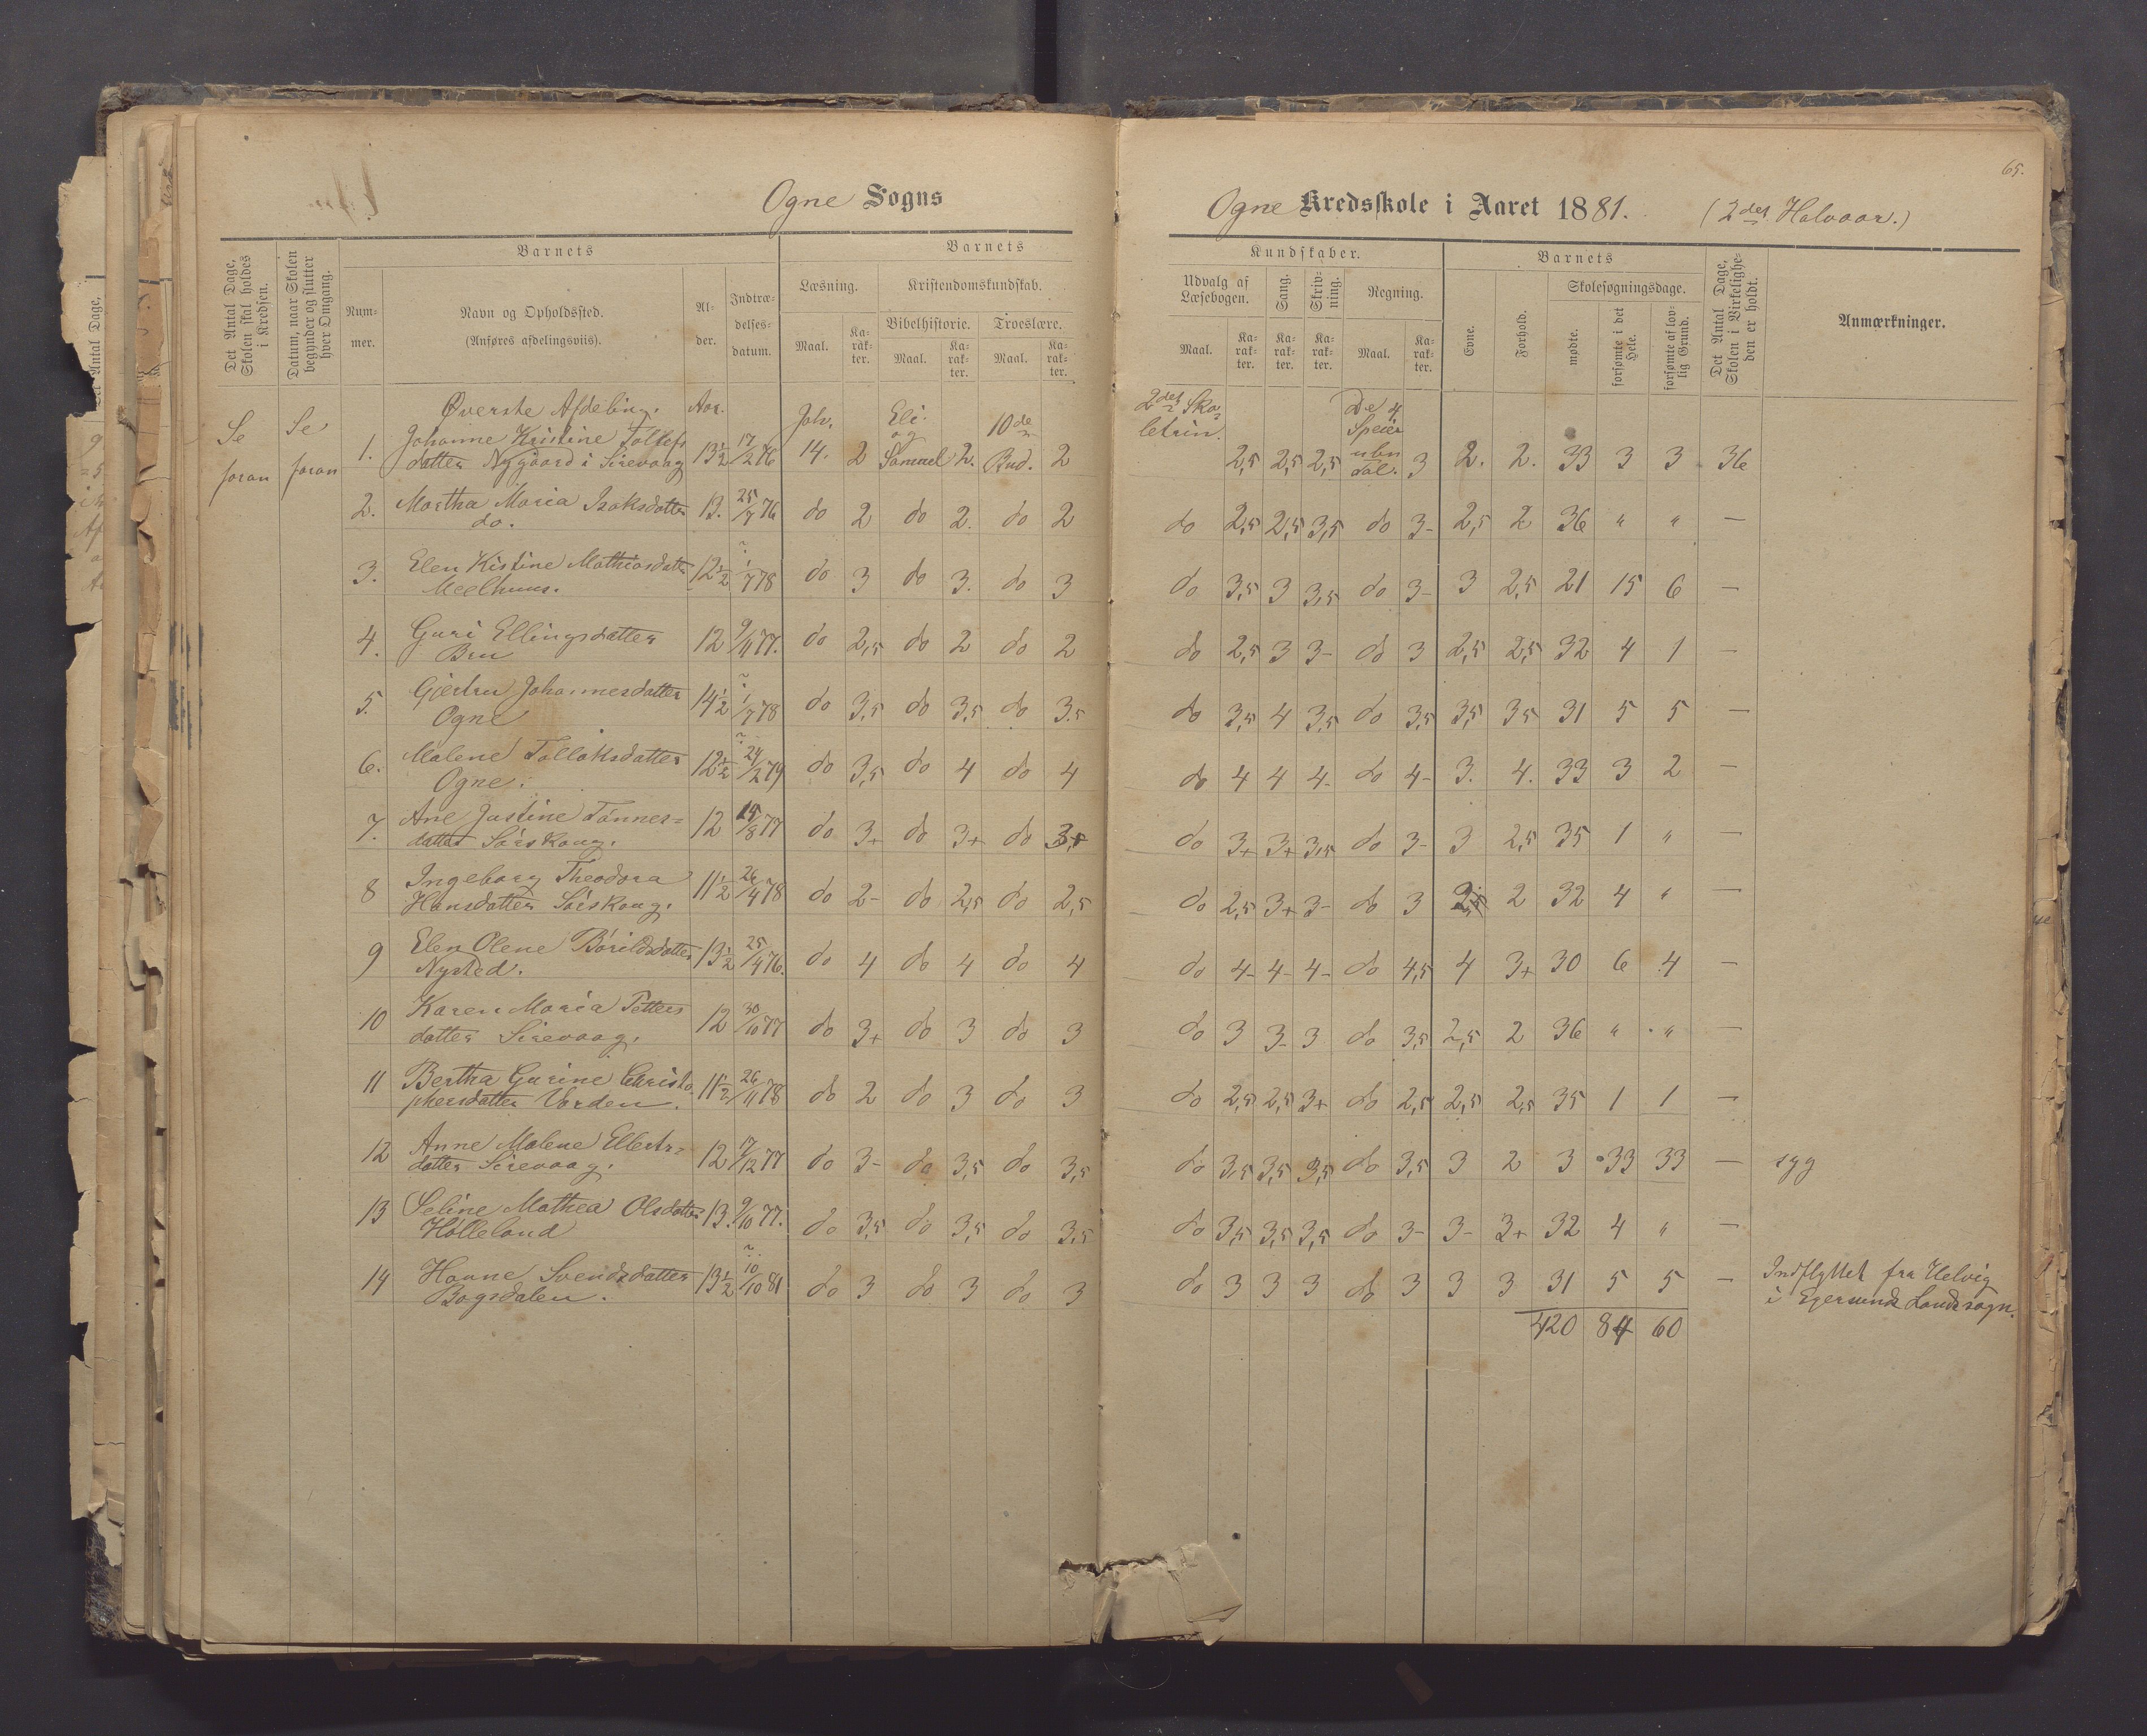 65.
Ogne Sogns
Ogne Kredsskole i Aaret 1881. (2det Halvaar.)
Det Antal Dage, Skolen skal holdes i Kredsen.
Datum, naar Skolen begynder og slutter hver Omgang.
Barnets
Num-mer.
Navn og Opholdssted.
(Anføres afdelingsviis).
Al-der.
Indtræ-delses-datum.
Barnets
Læsning.
Maal.
Ka-rak-ter.
Kristendomskundskab.
Bibelhistorie.
Maal.
Ka-rak-ter.
Troeslære.
Maal.
Ka-rak-ter.
Kundskaber.
Udvalg af Læsebogen.
Maal.
Ka-rak-ter.
Sang.
Ka-rak-ter.
Skriv-ning.
Ka-rak-ter.
Regning.
Maal.
Ka-rak-ter.
Barnets
Evne.
Forhold.
Skolesøgningsdage.
mødte.
forsømte i det Hele.
forsømte af lov-lig Grund.
Det Antal Dage, Skolen i Virkelighe-den er holdt.
Anmærkninger.
Se foran Se foran
Øverste Afdeling. Aar.
1. Johanne Kristine Tollefs 13½ 17/2 76 Joh. 14. 2 Eli og Samuel 2. 10de Bud. 2 2det Sko-letrin. 2,5 2,5 2,5 De 4 Speier ubn Tal. 3 2. 2. 33 3 3 36
datter Nygaard i Sirevaag
2. Martha Maria Isaksdatter 13. 25/7 76 do 2 do 2. do 2 do 2,5 2,5 3,5 do 3- 2,5 2 36 " " —
do.
3. Elen Kistine Mathiasdatter 12½ 1/7 78 do 3 do 3. do 3 do 3,5 3 3,5 do 3- 3 2,5 21 15 6 —
Meelhuus.
4. Guri Ellingsdatter 12 9/11 77. do 2,5 do 2 do 2 do 2,5 3 3- do 3 2,5 2,5 32 4 1 —
Bru
5. Gjertru Johannesdatter 14½ 1/7 78 do 3,5 do 3,5 do 3,5 do 3,5 4 3,5 do 3,5 3,5 3,5 31 5 5 —
Ogne
6. Malene Tollaksdatter 12½ 24/2 79 do 3,5 do 4 do 4 do 4 4 4- do 4- 3. 4. 33 3 2 —
Ogne.
7. Ane Justine Tønnes= 12 15/8 77 do 3+ do 3+ do do 3+ 3+ 3,5 do 3- 3 2,5 35 1 " —
datter Sørskaug.
8 Ingeborg Theodora 11½ 26/4 78 do 2- do 2,5 do 2,5 do 2,5 3+ 3- do 3 2 32 4 " —
Hansdatter Sørskaug.
9 Elen Olene Bårildsdatter 13½ 25/4 76. do 4 do 4 do 4 do 4- 4- 4- do 4,5 4 3+ 30 6 4 —
Nysted.
10 Karen Maria Petters 12 30/10 77 do 3+ do 3 do 3 do 3 3- 3 do 3,5 2,5 2 36 " " —
datter Sirevaag.
11 Bertha Gurine Christo 11½ 26/11 78 do 2 do 3 do 3 do 2,5 2,5 3+ do 2,5 2,5 2,5 35 1 1 —
phersdatter Varden.
12 Anne Malene Ellerts= 12 17/12 77 do 3- do 3,5 do 3,5 do 3,5 3,5 3,5 do 3,5 3 2 3 33 33 — syg
datter Sirevaag.
13 Seline Mathea Olsdatter 13. 9/10 77. do 3,5 do 3,5 do 3,5 do 3,5 3,5 3,5 do 3- 3- 3+ 32 4 " —
Holleland
14 Hanne Svendsdatter 13½ 10/10 81 do 3 do 3 do 3 do 3 3 3 do 3 3 3 31 5 5 — Indflyttet fra Helvig
Bogsdalen. i Egersunds Landsogn.
420 84 60